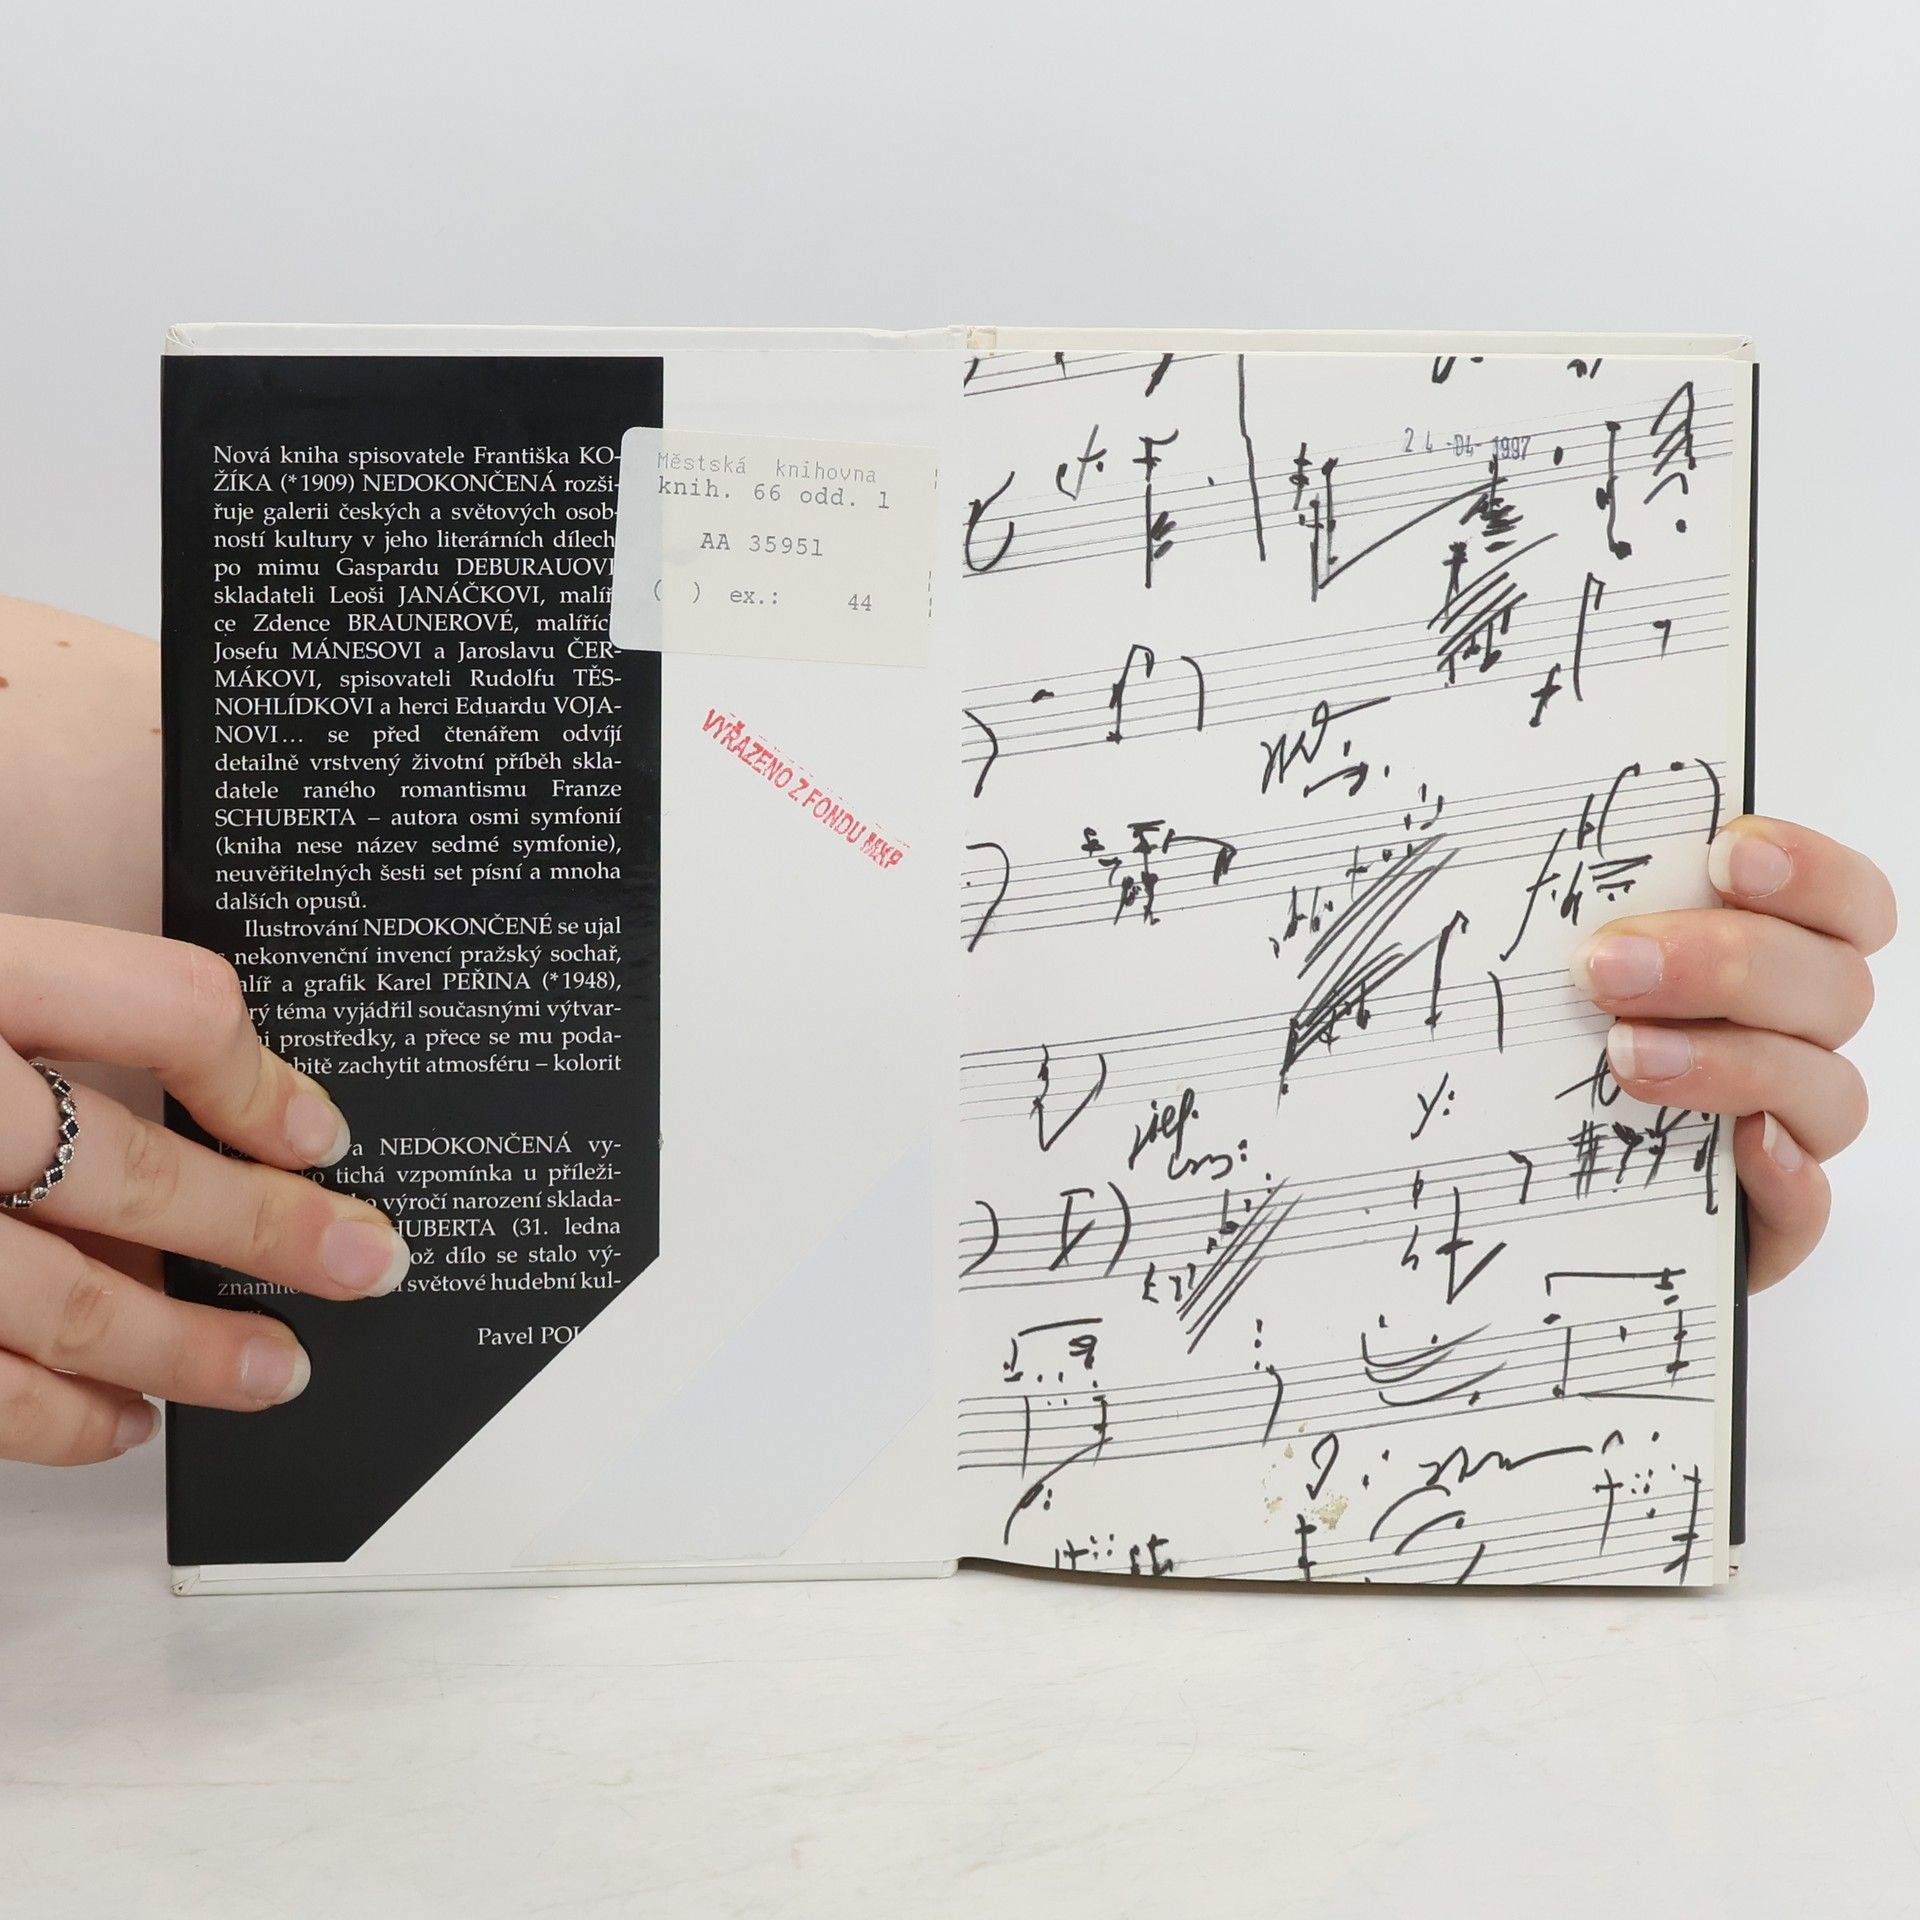 Nová kniha spisovatele Františka KO-
ŽÍKA (*1909) NEDOKONČENÁ rozši-
řuje galerii českých a světových osob-
ností kultury v jeho literárních dílech
po mimu Gaspardu DEBURAUOVI
skladateli Leoši JANÁČKOVI, malíř
ce Zdence BRAUNEROVÉ, malířích
Josefu MÁNESOVI a Jaroslavu ČER-
MÁKOVI, spisovateli Rudolfu TĚS-
NOHLÍDKOVI a herci Eduardu VOJA-
NOVI... se před čtenářem odvíjí
detailně vrstvený životní příběh skla-
datele raného romantismu Franze
SCHUBERTA – autora osmi symfonií
(kniha nese název sedmé symfonie),
neuvěřitelných šesti set písní a mnoha
dalších opusů.
Ilustrování NEDOKONČENÉ se ujal
nekonvenční invencí pražský sochař,
alíř a grafik Karel PEŘINA (*1948),
rý téma vyjádřil současnými výtvar-
i prostředky, a přece se mu poda-
bitě zachytit atmosféru – kolorit
va NEDOKONČENÁ vy-
ko tichá vzpomínka u příleži-
ho výročí narození sklada-
HUBERTA (31. ledna
ož dílo se stalo vý-
znamno světové hudební kul-
Pavel POL
Městská knihovna
knih. 66 odd. 1
AA 35951
( ) ex.: 44
VYŘAZENO Z FONDU MKP
24 -04- 1997